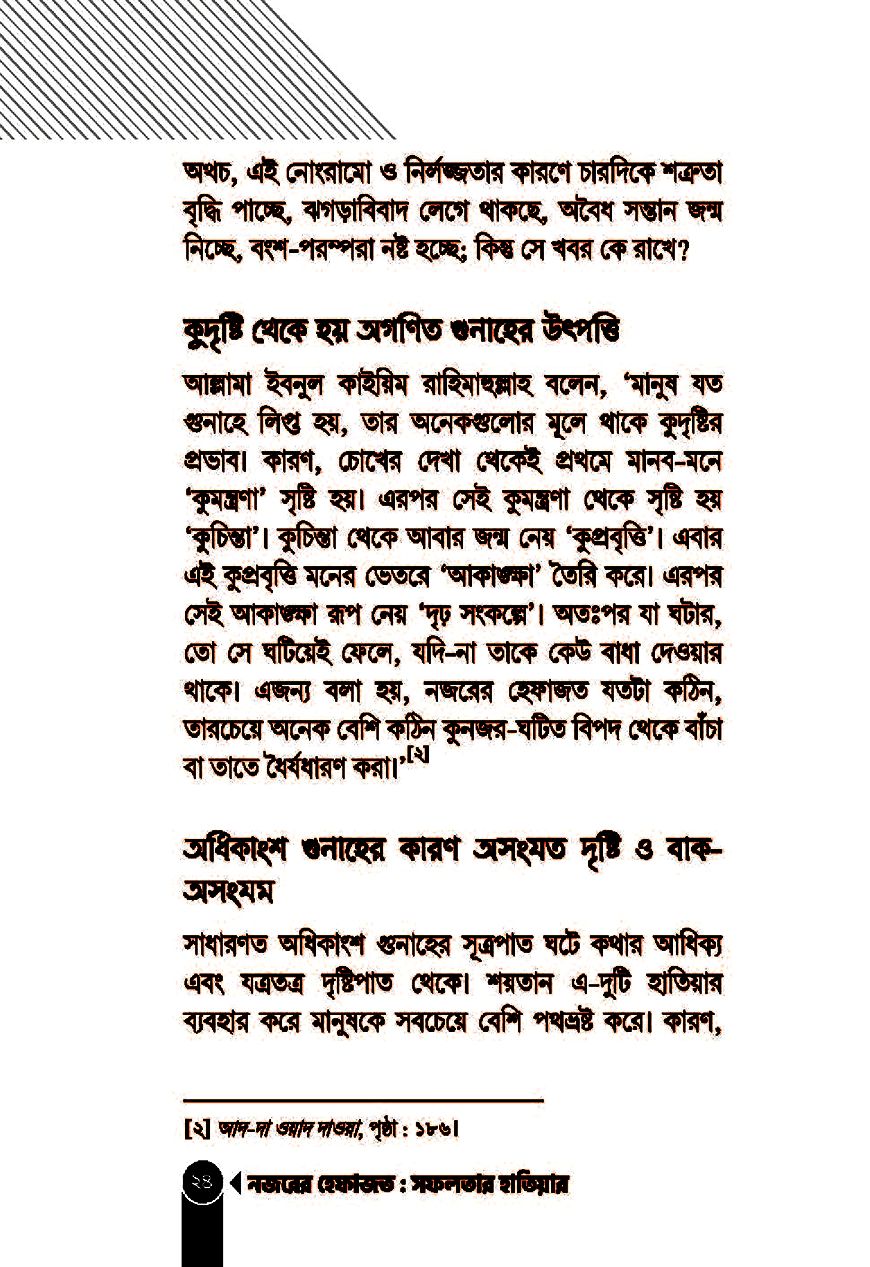 অথচ, এই নোংরামো ও নির্লজ্জতার কারণে চারদিকে শত্রুতা
বৃদ্ধি পাচ্ছে, ঝগড়াবিবাদ লেগে থাকছে, অবৈধ সন্তান জন্ম
নিচ্ছে, বংশ-পরম্পরা নষ্ট হচ্ছে; কিন্তু সে খবর কে রাখে?
কুদৃষ্টি থেকে হয় অগণিত গুনাহের উৎপত্তি
আল্লামা ইবনুল কাইয়িম রাহিমাহুল্লাহ বলেন, ‘মানুষ যত
গুনাহে লিপ্ত হয়, তার অনেকগুলোর মূলে থাকে কুদৃষ্টির
প্রভাব। কারণ, চোখের দেখা থেকেই প্রথমে মানব-মনে
‘কুমন্ত্রণা’ সৃষ্টি হয়। এরপর সেই কুমন্ত্রণা থেকে সৃষ্টি হয়
‘কুচিন্তা’। কুচিন্তা থেকে আবার জন্ম নেয় ‘কুপ্রবৃত্তি’। এবার
এই কুপ্রবৃত্তি মনের ভেতরে ‘আকাঙ্ক্ষা’ তৈরি করে। এরপর
সেই আকাঙ্ক্ষা রূপ নেয় ‘দৃঢ় সংকল্পে’। অতঃপর যা ঘটার,
তো সে ঘটিয়েই ফেলে, যদি-না তাকে কেউ বাধা দেওয়ার
থাকে। এজন্য বলা হয়, নজরের হেফাজত যতটা কঠিন,
তারচেয়ে অনেক বেশি কঠিন কুনজর-ঘটিত বিপদ থেকে বাঁচা
বা তাতে ধৈর্যধারণ করা।’[২]
অধিকাংশ গুনাহের কারণ অসংযত দৃষ্টি ও বাক-
অসংযম
সাধারণত অধিকাংশ গুনাহের সূত্রপাত ঘটে কথার আধিক্য
এবং যত্রতত্র দৃষ্টিপাত থেকে। শয়তান এ-দুটি হাতিয়ার
ব্যবহার করে মানুষকে সবচেয়ে বেশি পথভ্রষ্ট করে। কারণ,
[২] আদ-দা ওয়াদ দাওয়া, পৃষ্ঠা : ১৮৬।
২৪ নজরের হেফাজত : সফলতার হাতিয়ার